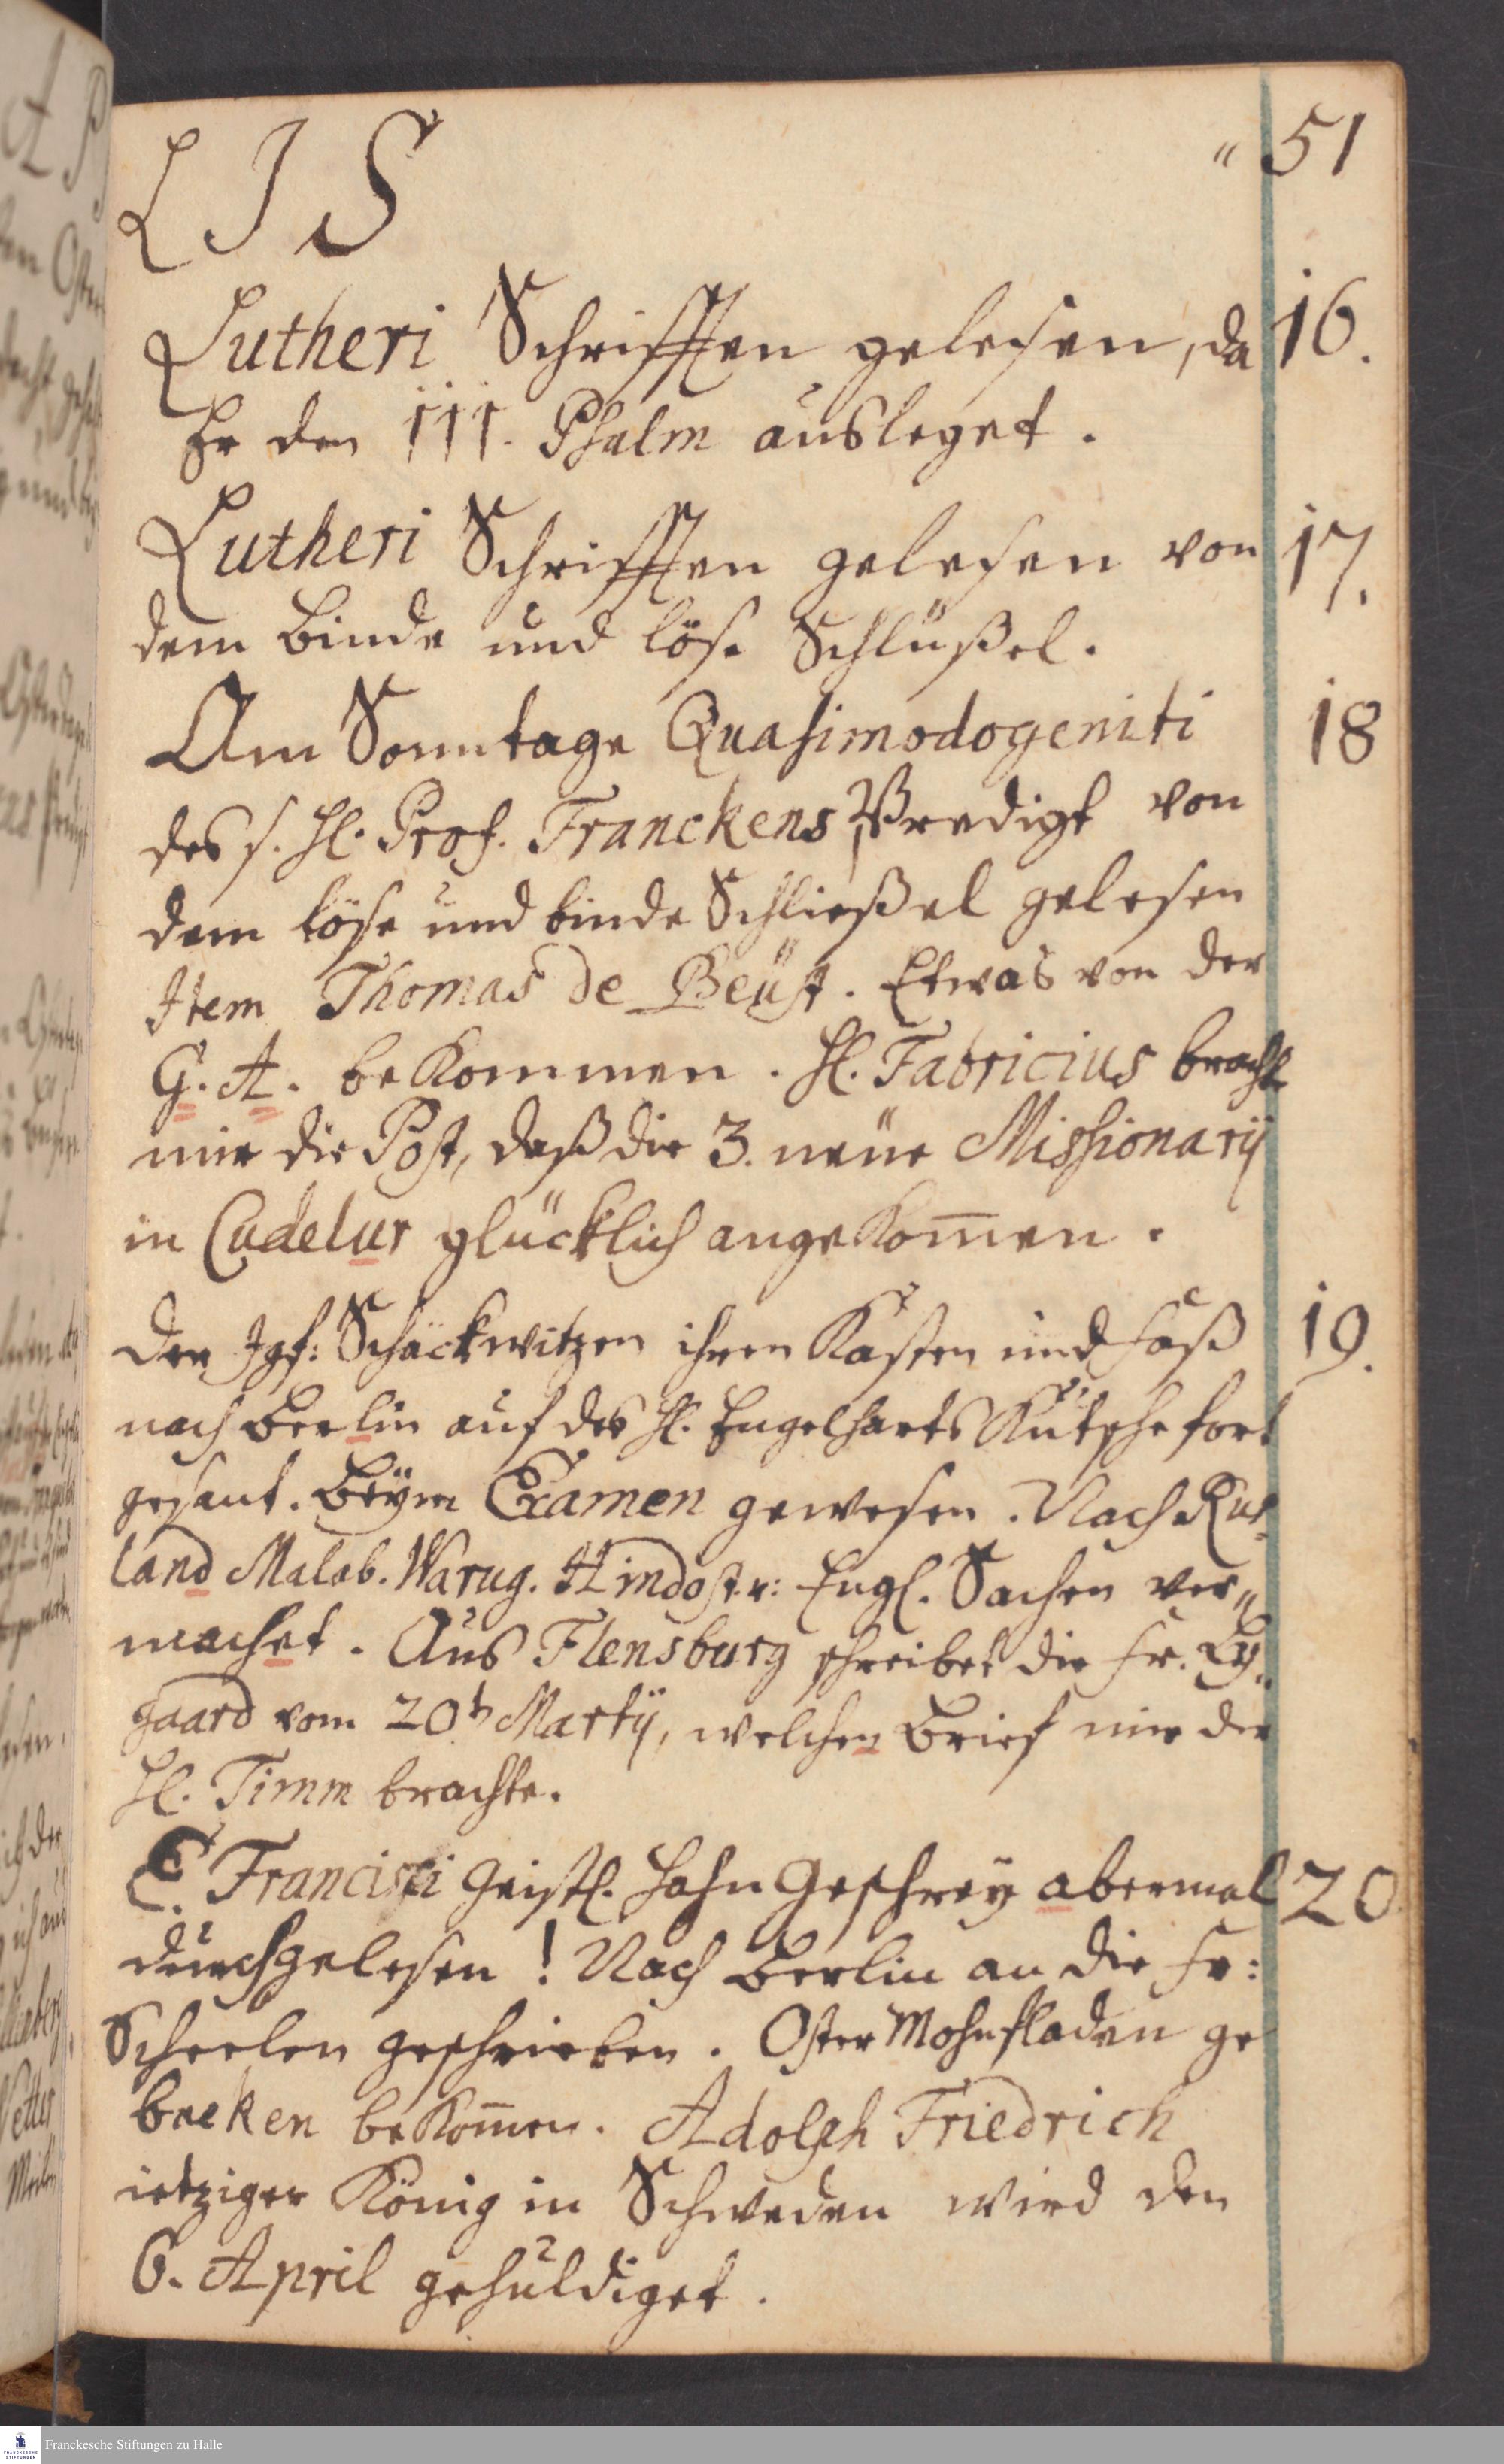 LIS " 51
Lutheri Schrifften gelesen, da 16.
Er den 111. Psalm ausleget.
Lutheri Schrifften gelesen von 17.
dem binde und löse Schlüßel.
Am Sonntage Quasimodogeniti 18
des s. H. Prof. Franckens Predigt von
dem löse und binde Schließel gelesen
Item Thomas de Beüst. Etwas von der
G. A. bekommen. H. Fabricius bracht
mir die Post, daß die 3. neue Missionarij
in Cudelur glücklich angekom̄en.
Der Jgf: Schäckwitzen ihren Kasten und Faß 19.
nach Berlin auf des H. Engelharts Kutsche fort
gesant. Beÿm Examen gewesen. Nach Rus-
land Malab. Warug. Hindost. u: Engl. Sachen ver"
machet. Aus Flensburg schreibet die Fr. Ly"
gaard vom 20t Martij, welchen Brief mir der
H. Timm brachte.
E. Francisci Geistl. Hahn Geschreÿ abermal 20.
durchgelesen! Nach Berlin an die Fr:
Scheelen geschrieben. Oster Mohnfladen ge
backen bekom̄en. Adolph Friedrich
ietziger König in Schweden wird den
6. April gehuldiget.
Franckesche Stiftungen zu Halle